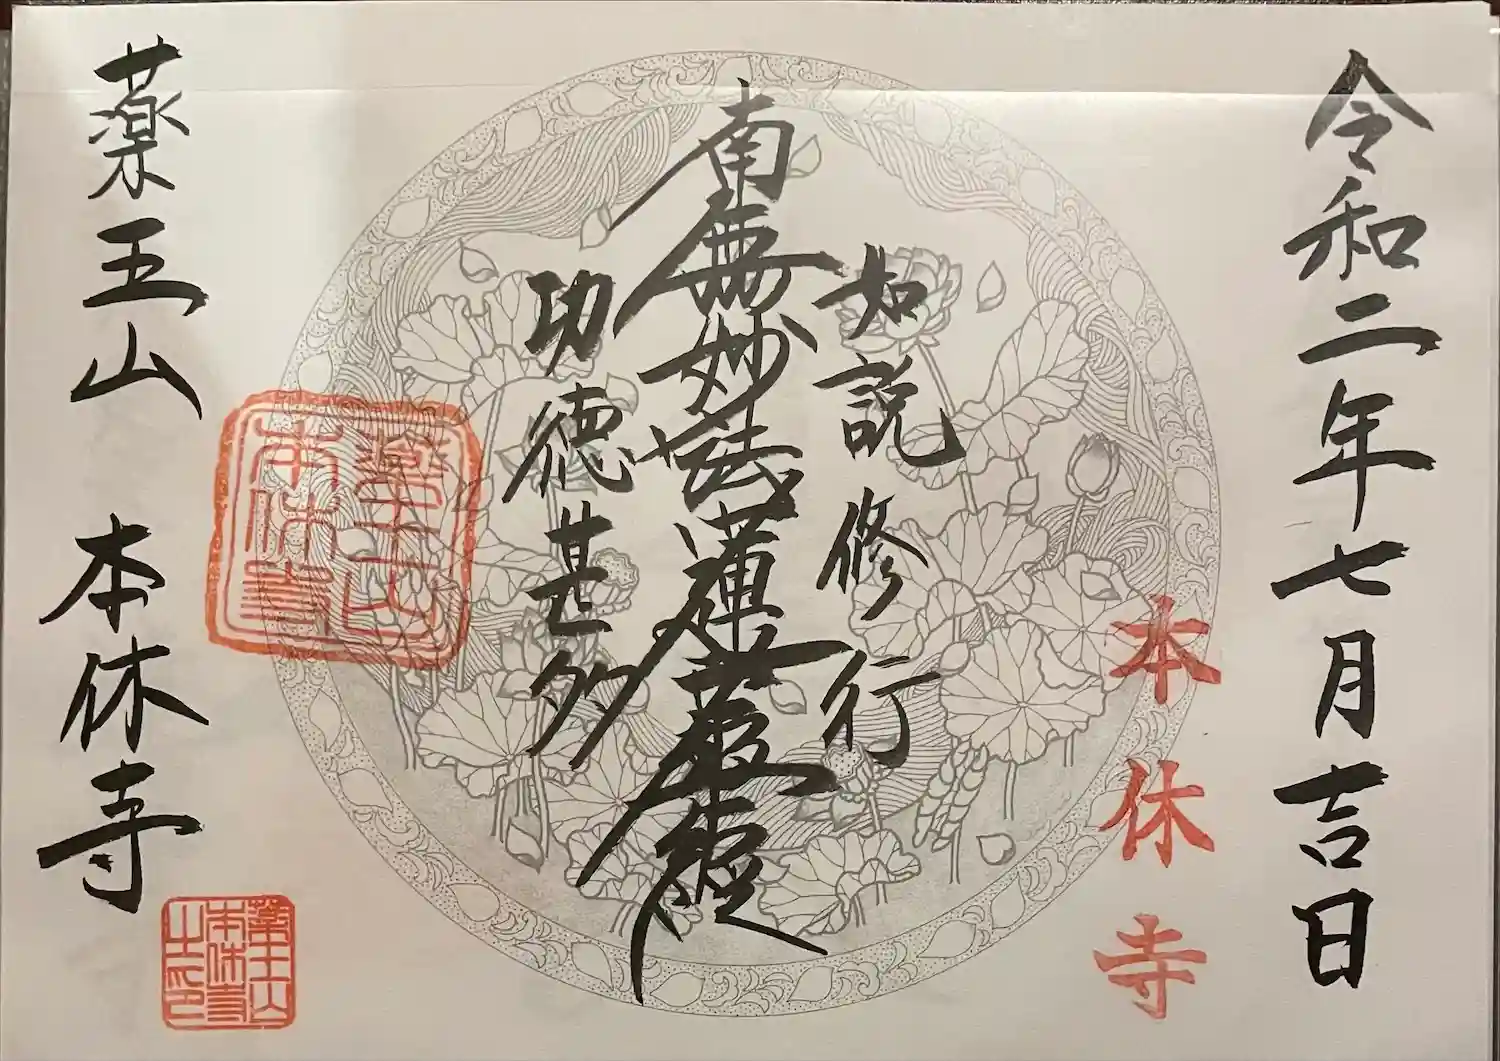 令和二年七月吉日
本休寺
如説修行
南無妙法蓮華経
功徳甚多
薬王山
本休寺
薬王山
本休寺
薬王山
本休寺
之印